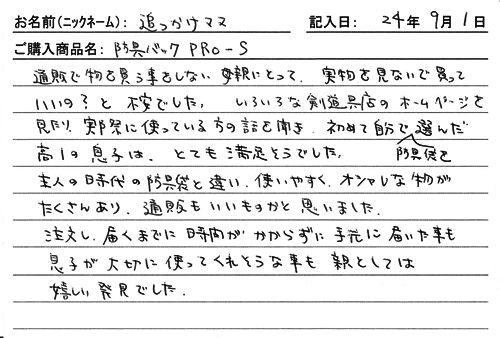 お名前(ニックネーム): 追っかけママ 記入日: 24年 9月 1日
ご購入商品名: 防具バック PRO-S
通販で物を買う事をしない母親にとって、実物を見ないで買って
いいの?と 不安でした。いろいろな剣道具店のホームページを
見たり、実際に使っている方の話を聞き、初めて自分で選んだ
防具袋を
高1の息子は、とても満足そうでした。
主人の時代の防具袋と違い、使いやすく、オシャレな物が
たくさんあり、通販もいいものかと思いました。
注文し、届くまでに時間がかからずに手元に届いた事も
息子が大切に使ってくれそうな事も親としては
嬉しい発見でした。